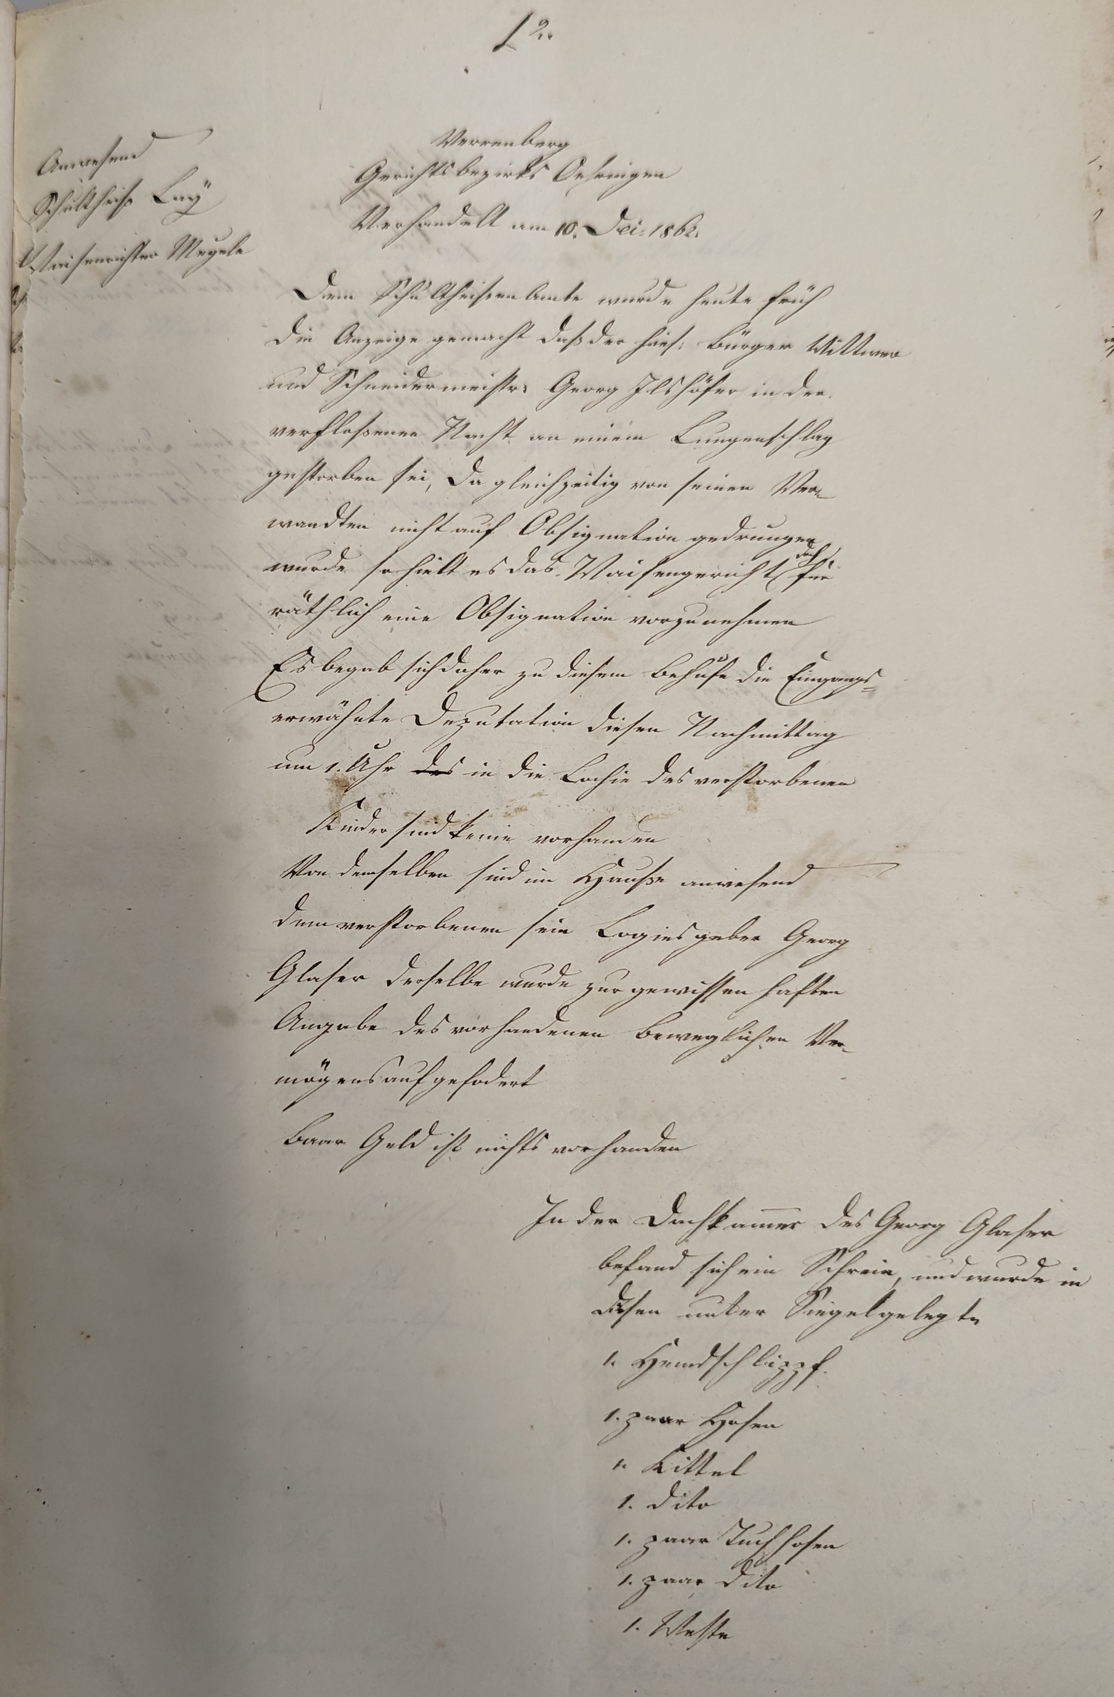 § 2.
Anwesend
Schultheiß Lay
Waisenrichter Megerle
Verrenberg
Gerichtsbezirks Oehringen
Verhandelt am 10. Dec. 1862.
Dem Schultheisen Amte wurde heute früh
die Anzeige gemacht daß der hies: Bürger Wittwer
und Schneidermeister Georg Ilshöfer in der
verfloßenen Nacht an einem Lungenschlag
gestorben sei, da gleichzeitig von seinen Ver-
wandten nicht auf Obsignation gedrungen
wurde so hielt es das Waisengericht doch für
räthlich eine Obsignation vorzunehmen
Es begab sich daher zu diesem Behufe die Eingangs-
erwähnte Deputation diesen Nachmittag
um 1. Uhr des in die Lochie des verstorbenen
Kinder sind keine vorhanden
Von demselben sind im Hauße anwesend
dem verstorbenen sein Logiesgeber Georg
Glaser derselbe wurde zur gewissenhaften
Angabe des vorhandenen beweglichen Ver-
mögens aufgefodert
Baar Geld ist nichts vorhanden
In der Dachkammer des Georg Glaser
befand sich ein Schrein, und wurde in
diesen unter Siegel gelegt
1. Hemdschlippf.
1. paar Hosen
1. Kittel
1. dito
1. paar Tuchhosen
1. paar dito
1. Weste